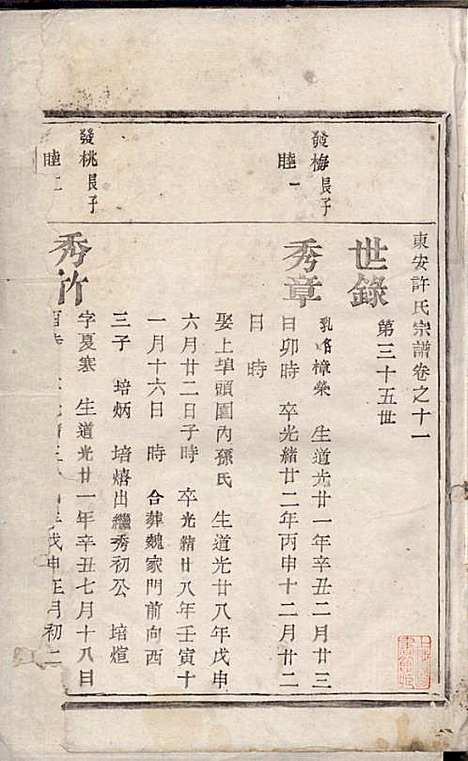 東安許氏宗譜卷之十一
世錄
第三十五世
發梅長子
睦一
秀章
乳名樟榮 生道光廿一年辛丑二月廿三
日卯時 卒光緒廿二年丙申十二月廿二
日 時
娶上埠頭園內孫氏 生道光廿八年戊申
六月廿二日子時 卒光緒廿八年壬寅十
一月十六日 時 合葬魏家門前向西
三子 培炳 培熺出繼秀初公 培煊
發桃長子
睦
秀竹
字夏寒 生道光廿一年辛丑七月十八日
年戊申正月初二